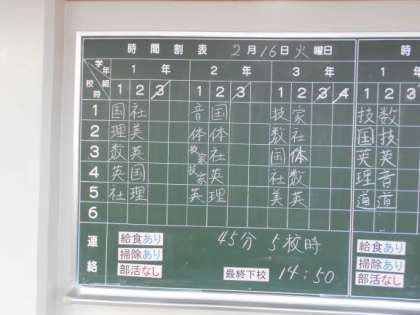 時間割表 2月16日火曜日
学年 組 校時 1年 2年 3年 時
1 2 3 1 2 3 1 2 3 4 1 2
1 国 社 音 国 技 家 技 数
2 理 美 体 体 数 社 国 技
3 数 英 技家 社 国 体 英 英
4 英 国 技家 英 社 数 理 音
5 社 理 英 理 美 英 道 道
6
連絡 給食あり 45分 5校時 給食あり
掃除あり 掃除あり
部活なし 最終下校 14:50 部活なし